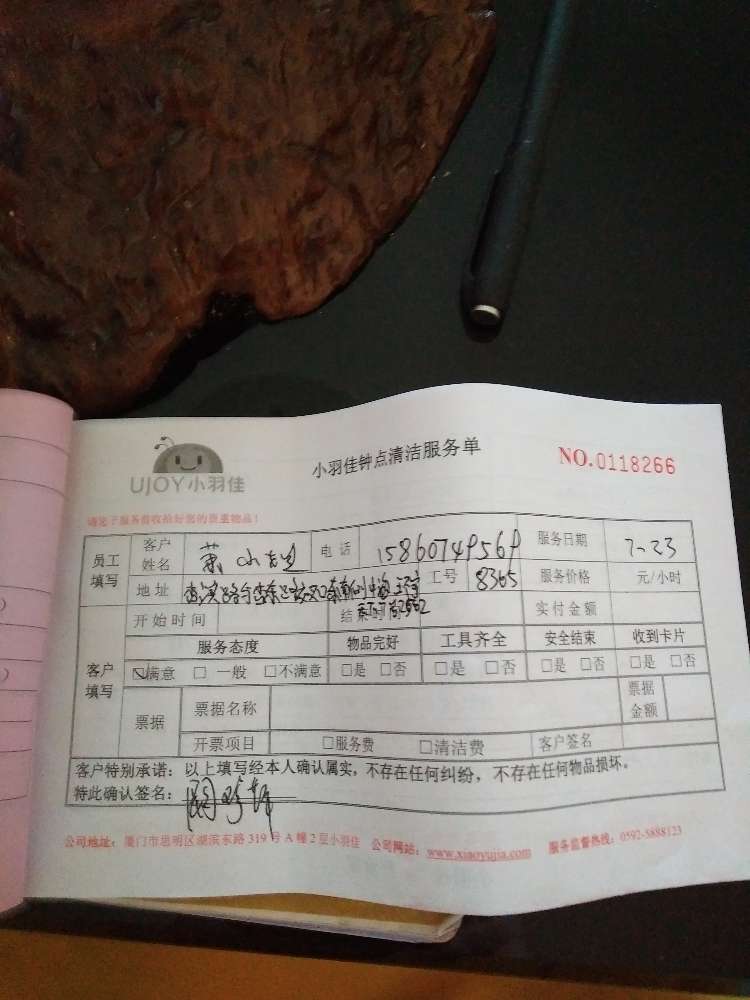 UJOY小羽佳
小羽佳钟点清洁服务单
NO.0118266
请先于服务前收拾好您的贵重物品!
员工填写 客户姓名 小 电话 15860749569 服务日期 7-23
地址 工号 8365 服务价格 元/小时
开始时间 结束时间 实付金额
服务态度 物品完好 工具齐全 安全结束 收到卡片
客户填写 ☑满意 □ 一般 □不满意 □是 □否 □是 □否 □是 □否 □是 □否
票据 票据名称 票据金额
开票项目 □服务费 □清洁费 客户签名
客户特别承诺:以上填写经本人确认属实,不存在任何纠纷,不存在任何物品损坏。
特此确认签名:
公司地址:厦门市思明区湖滨东路 319 号 A 幢 2 层小羽佳 公司网站:www.xiaoyujia.com 服务监督热线:0592-5888123